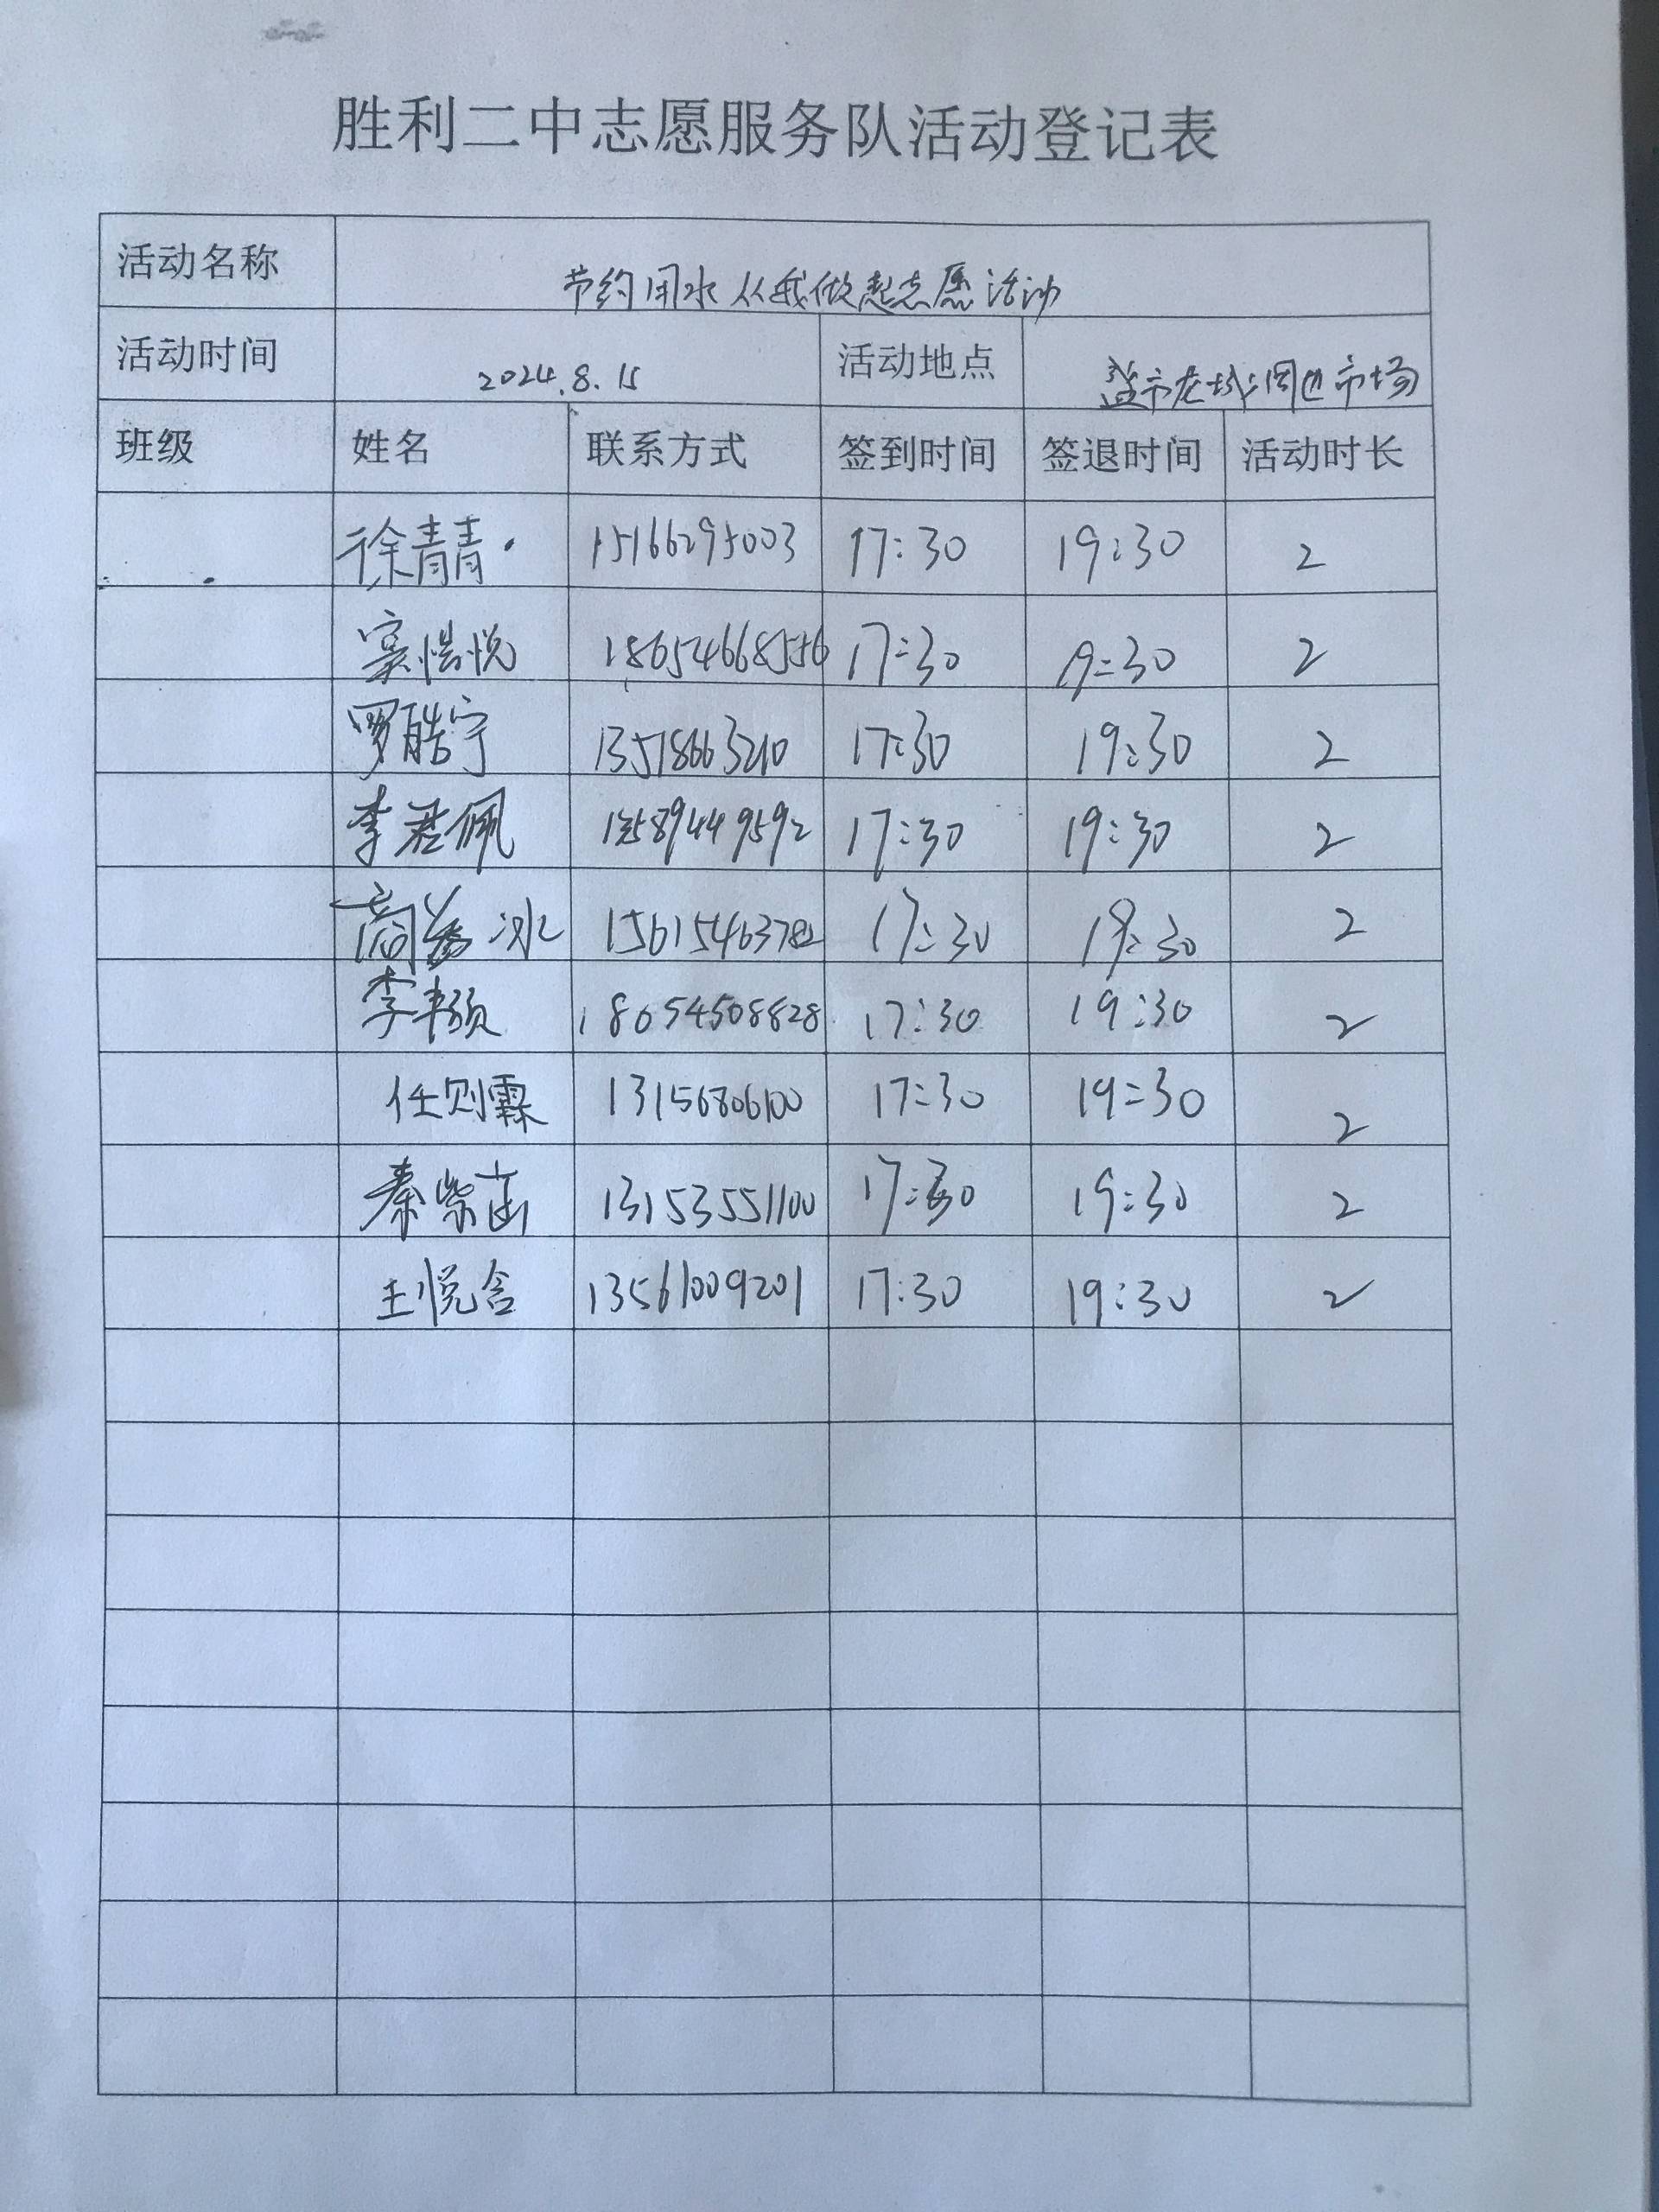 胜利二中志愿服务队活动登记表
活动名称 节约用水 从我做起志愿活动
活动时间 2024.8.15 活动地点 周边市场
班级 姓名 联系方式 签到时间 签退时间 活动时长
徐青青 15166295003 17:30 19:30 2
悦 18654668556 17:30 19:30 2
罗皓宁 17:30 19:30 2
李君佩 17:30 19:30 2
商 冰 15615463782 17:30 19:30 2
李 颀 18654508828 17:30 19:30 2
任则霖 13156806100 17:30 19:30 2
秦紫菡 13153551100 17:30 19:30 2
王悦含 13561009201 17:30 19:30 2